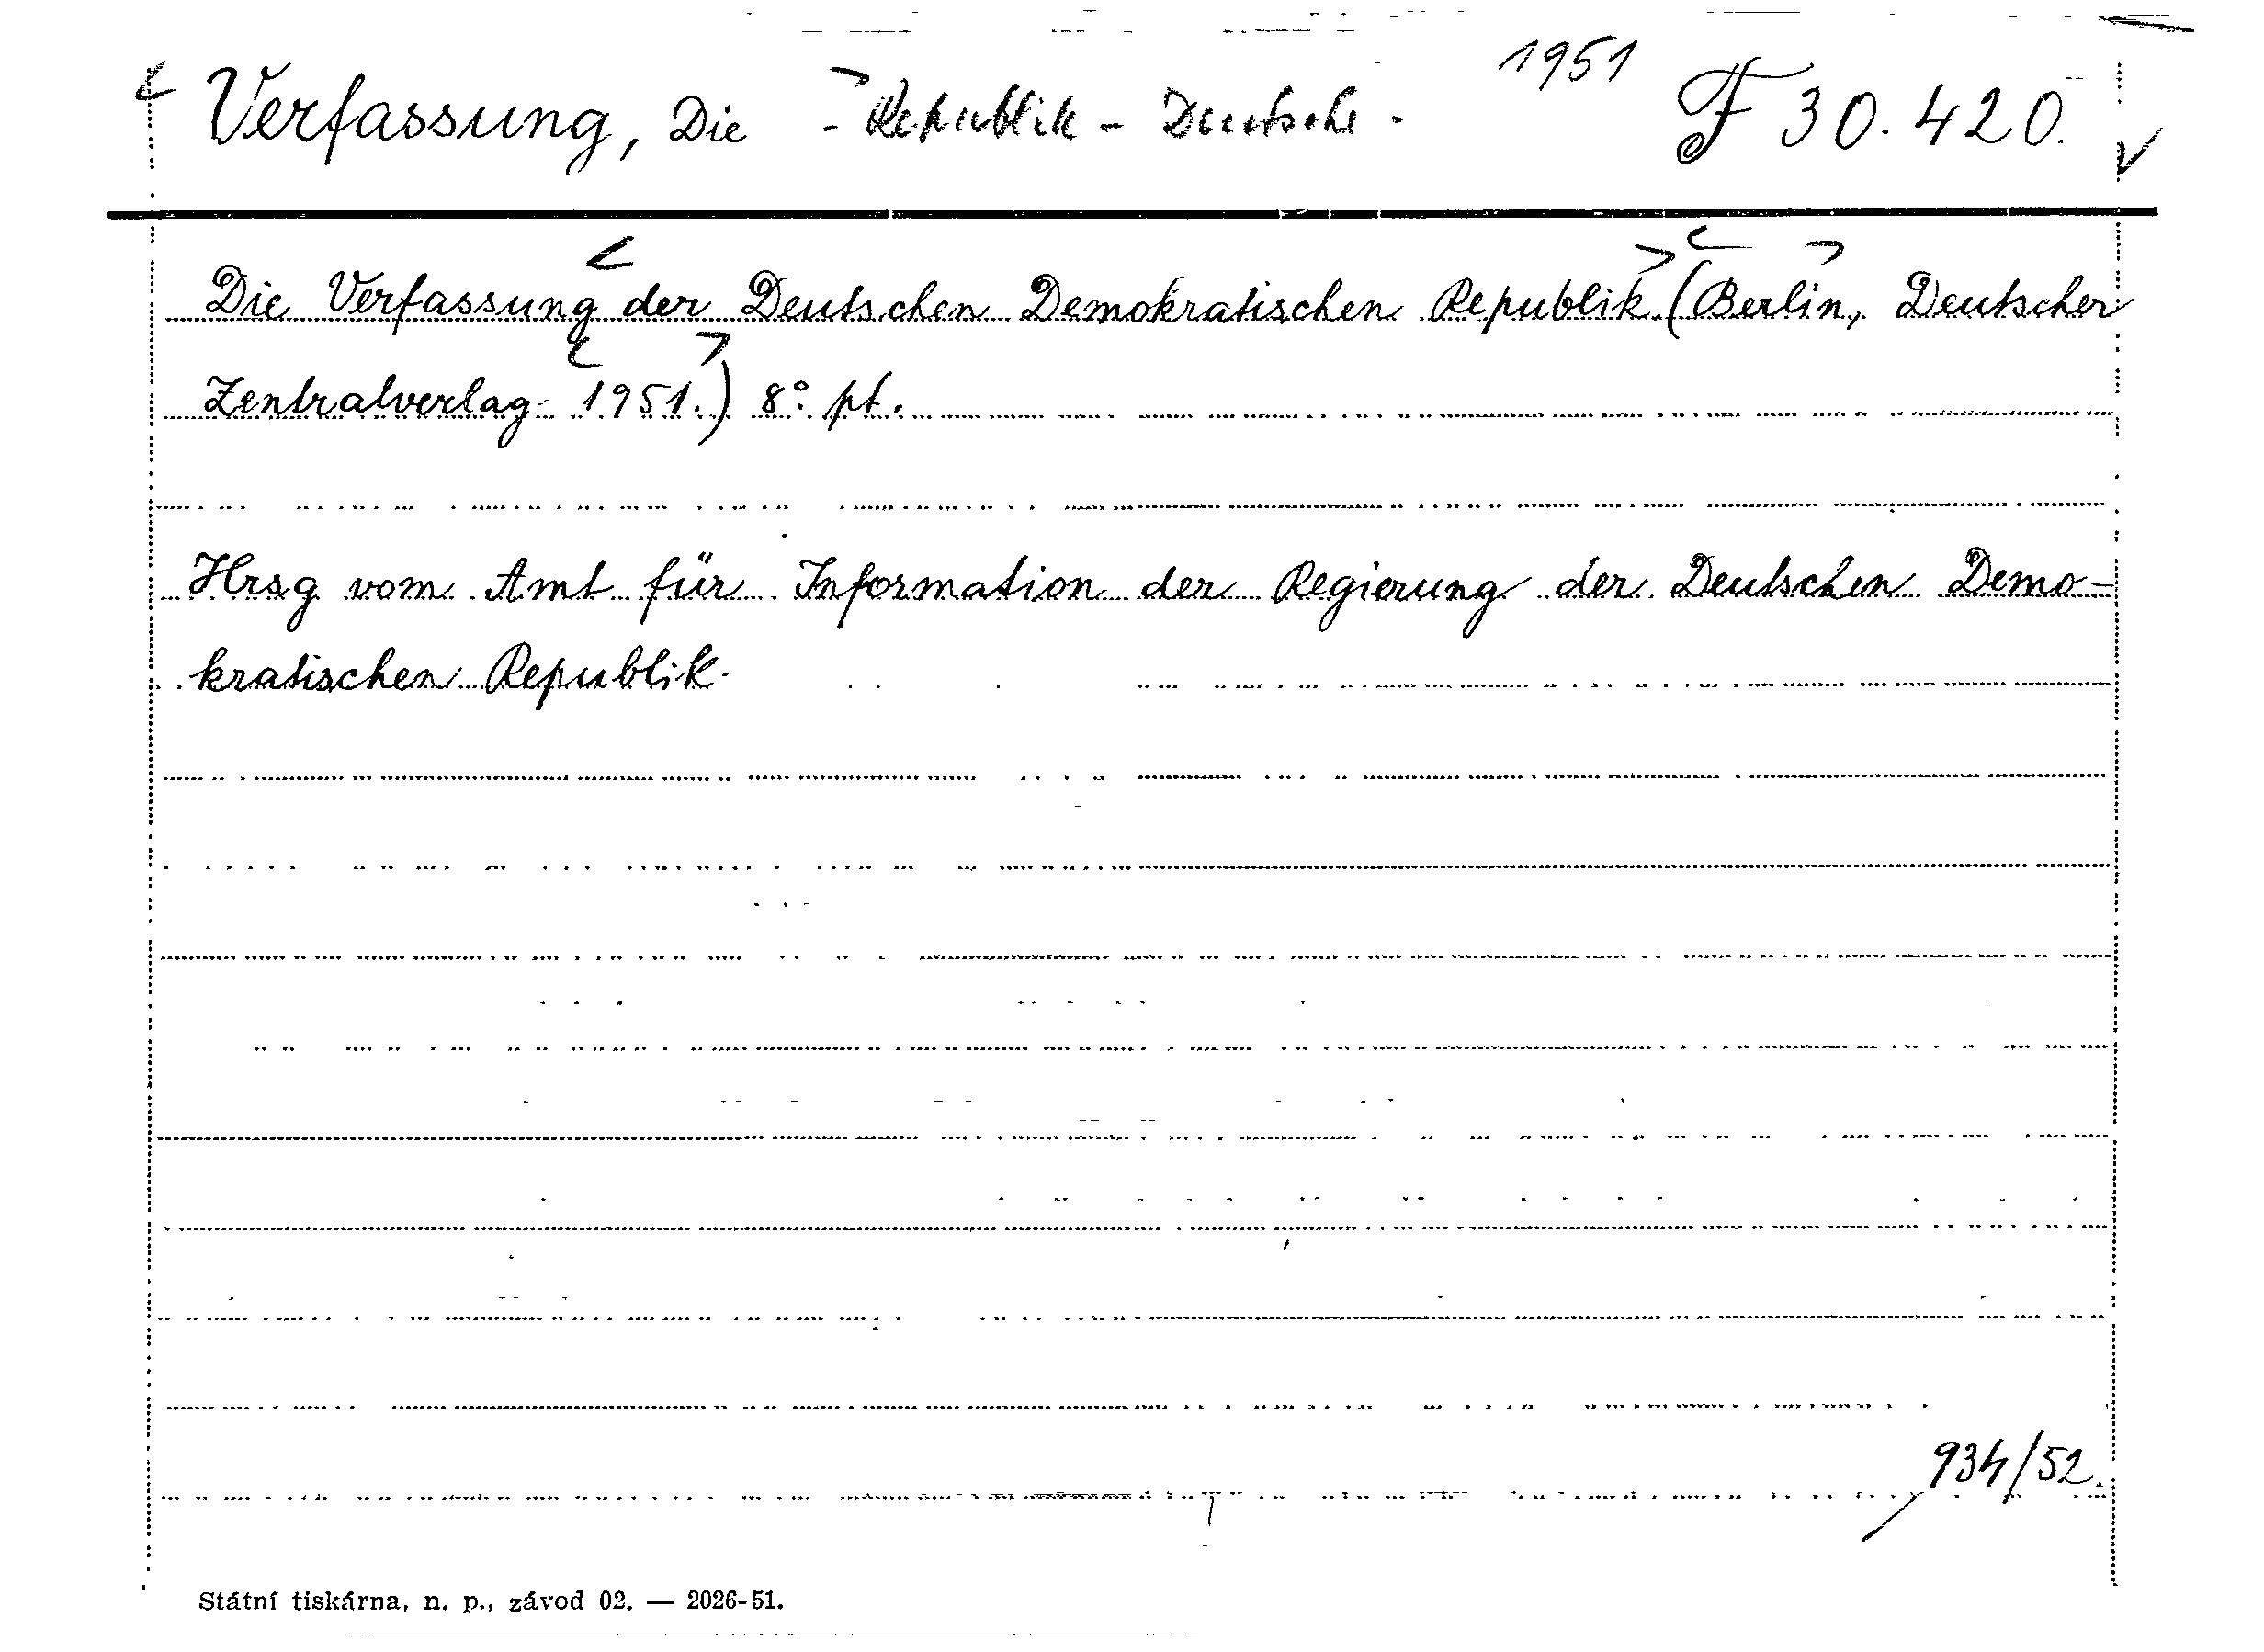 1951
Verfassung, Die - Republik - Deutsche. F 30.420.
Die Verfassung der Deutschen Demokratischen Republik (Berlin, Deutscher
Zentralverlag 1951.) 8° pt.
Hrsg vom Amt für Information der Regierung der Deutschen Demo-
kratischen Republik.
934/52.
Státní tiskárna, n. p., závod 02. — 2026-51.